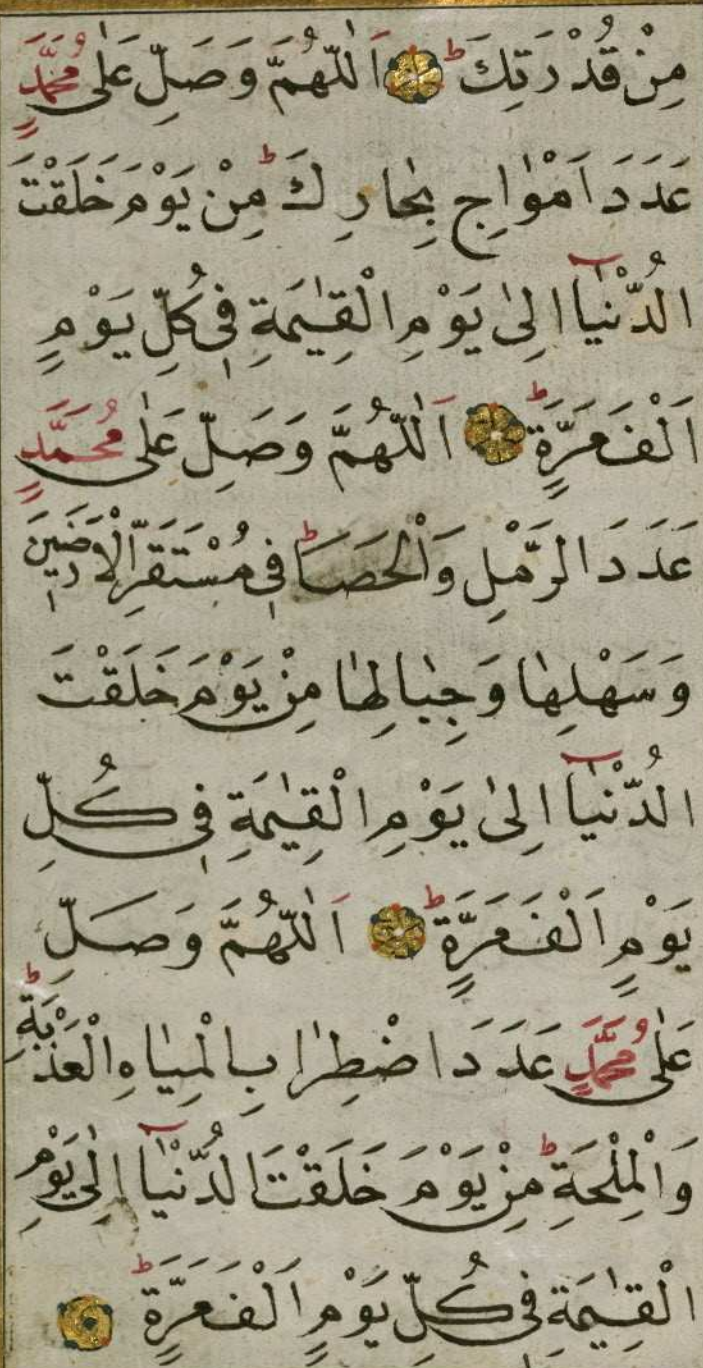 مِنْ قُدْرَتِكَ ۞ اَللّٰهُمَّ وَصَلِّ عَلٰى مُحَمَّدٍ
عَدَدَ اَمْوٰاجِ بِحٰارِكَ مِنْ يَوْمَ خَلَقْتَ
الدُّنْيٰٓا اِلىٰ يَوْمِ الْقِيٰمَةِ فِى كُلِّ يَوْمٍ
اَلْفَ مَرَّةٍ ۞ اَللّٰهُمَّ وَصَلِّ عَلٰى مُحَمَّدٍ
عَدَدَ الرَّمْلِ وَالْحَصَا فِى مُسْتَقَرِّ الْاَرَضِينَ
وَسَهْلِهٰا وَجِبٰالِهٰا مِنْ يَوْمَ خَلَقْتَ
الدُّنْيٰٓا اِلىٰ يَوْمِ الْقِيٰمَةِ فِى كُلِّ
يَوْمٍ اَلْفَ مَرَّةٍ ۞ اَللّٰهُمَّ وَصَلِّ
عَلٰى مُحَمَّدٍ عَدَدَ اضْطِرٰابِ الْمِيٰاهِ الْعَذْبَةِ
وَالْمِلْحَةِ مِنْ يَوْمَ خَلَقْتَ الدُّنْيٰٓا اِلٰى يَوْمِ
الْقِيٰمَةِ فِى كُلِّ يَوْمٍ اَلْفَ مَرَّةٍ ۞